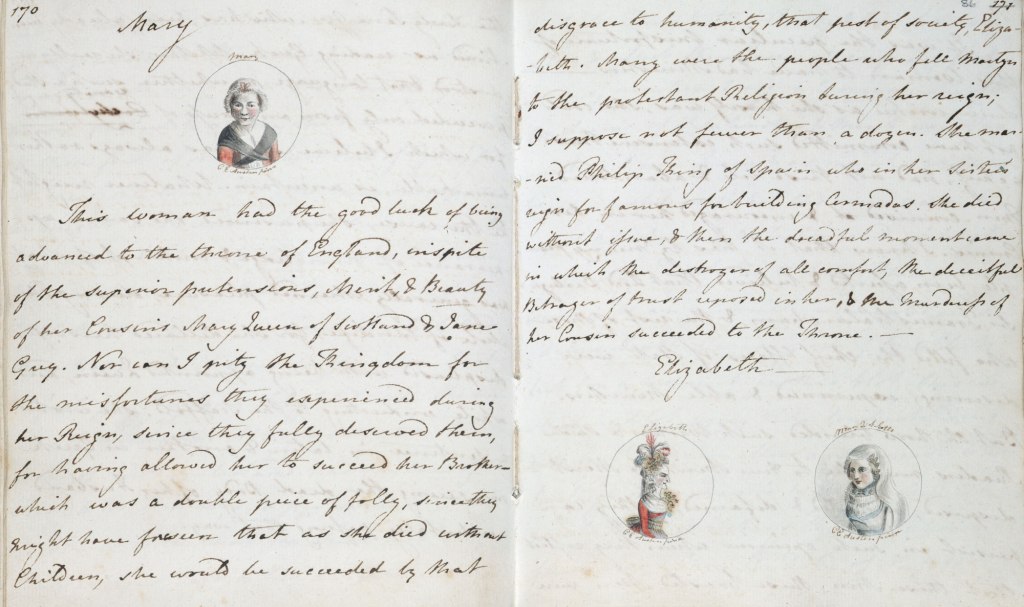 170
Mary
Mary
C E Austen pinx
This woman had the good luck of being
advanced to the throne of England, inspite
of the superior pretensions, Merit, & Beauty
of her Cousins Mary Queen of Scotland & Jane
Grey. Nor can I pity the Kingdom for
the misfortunes they experienced during
her Reign, since they fully deserved them,
for having allowed her to succeed her Brother—
which was a double peice of folly, since they
might have foreseen that as she died without
Children, she would be succeeded by that
86 171
disgrace to humanity, that pest of society, Eliza-
-beth. Many were the people who fell Martyrs
to the protestant Religion during her reign;
I suppose not fewer than a dozen. She mar-
-ried Philip King of Spain who in her Sister's
reign for famous for building Armadas. She died
without issue, & then the dreadful moment came
in which the destroyer of all comfort, the deceitful
Betrayer of trust reposed in her, & the Murderess of
her Cousin succeeded to the Throne.—
Elizabeth—
Elizabeth
C E Austen pinx
Mary Q. of Scots
C E Austen pinxit